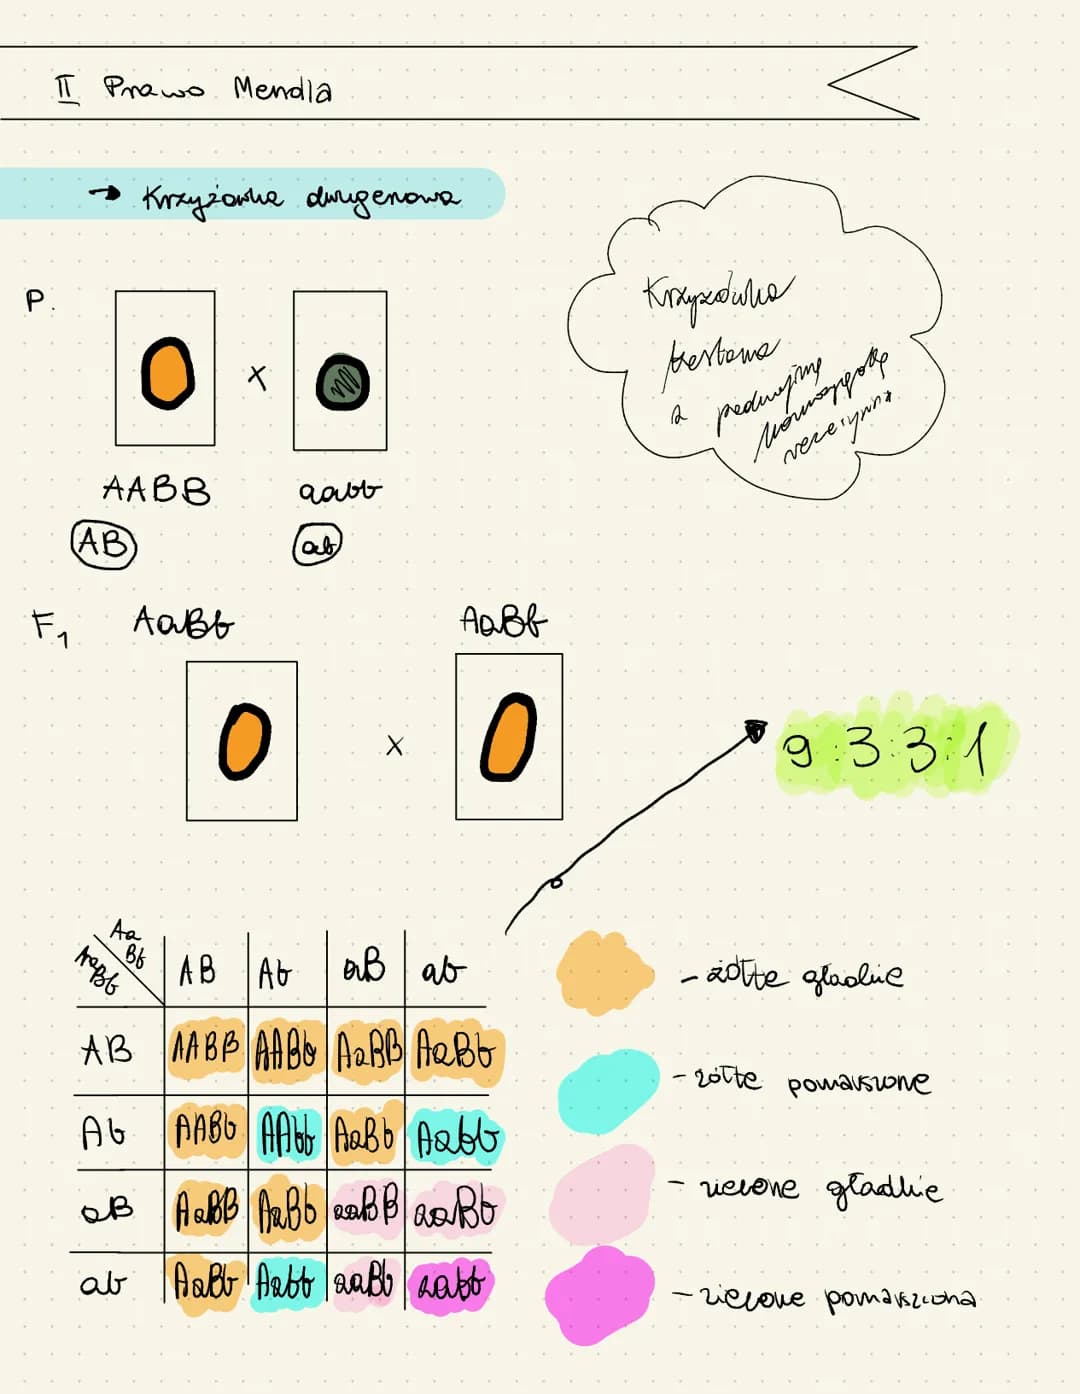 II Prawo Mendla
→ Krzyżówka dwugenowa
Krzyżówka
testowa
z podwójną
homozygotą
recesywną
P.
x
AABB aabb
AB ab
F1 AaBb AaBb
x
9:3:3:1
Aa
Bb
AaBb
AB Ab aB ab
AB AABB AABb AaBB AaBb
Ab AABb AAbb AaBb Aabb
aB AaBB AaBb aaBB aaBb
ab AaBb Aabb aaBb aabb
- żółte gładkie
- żółte pomarszone
- zielone gładkie
- zielone pomarszczona